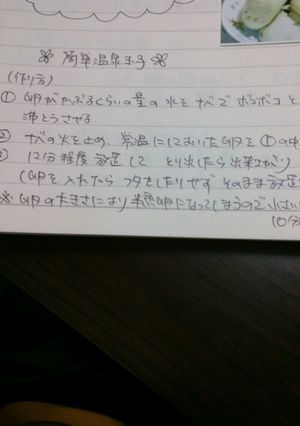 ❀ 簡単温泉玉子 ❀
(作り方)
① 卵がかぶるくらいの量の水をナベでボコボコと
沸とうさせる。
② ナベの火を止め、常温にしておいた卵を①の中
② 12分程度放置して とり出したら出来上がり
(卵を入れたら フタをしたりせず そのまま放置
※ 卵の大きさにより半熟卵になってしまうので小さい
10分